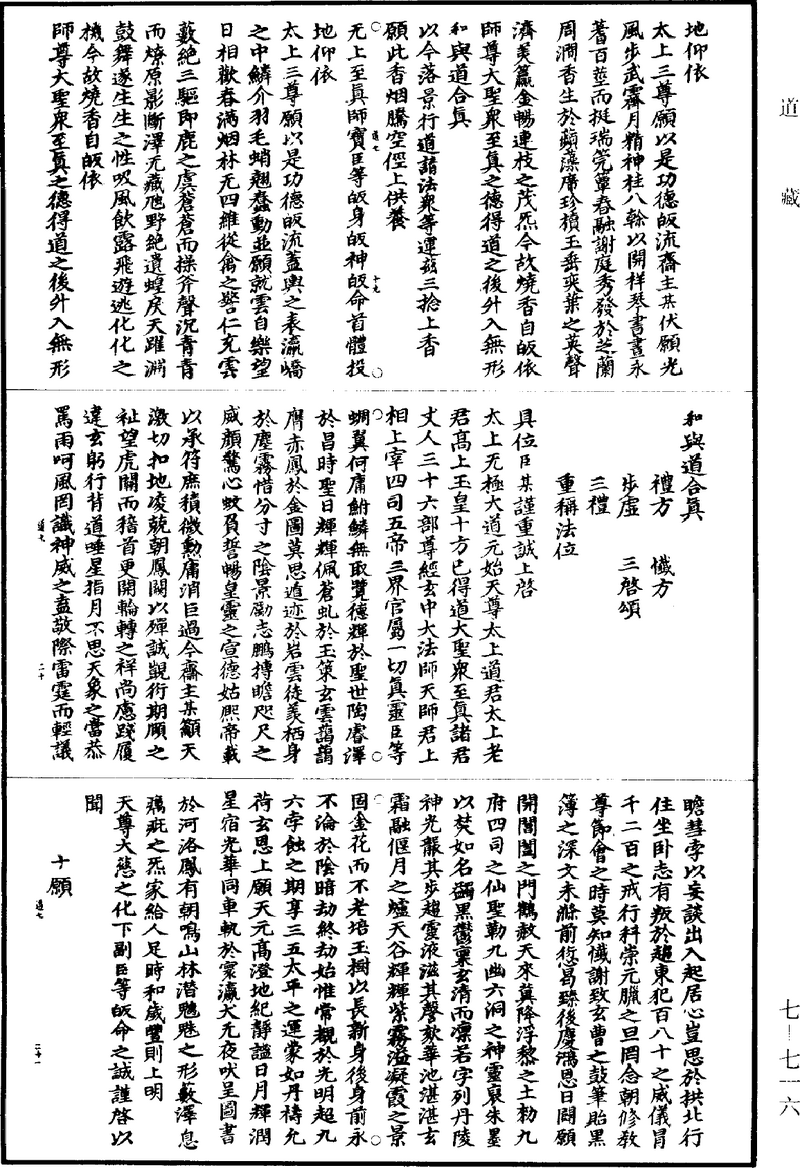 道藏
地仰依
太上三尊願以是功德皈流齋主某伏願光
風步武霽月精神桂八榦以開祥琴書晝永
蓍百莖而挺瑞筦簟春融謝庭秀發於芝蘭
周澗香生於蘋藻席珍擯玉垂奕葉之英聲
濟美籯金暢連枝之茂炁今故燒香自皈依
師尊大聖衆至眞之德得道之後外入無形
和與道合眞
以今落景行道諸法衆等運玆三捻上香
願此香烟騰空俓上供養
无上至眞師寶臣等皈身皈神皈命首體投
道七
十九
地仰依
太上三尊願以是功德皈流蓋輿之表瀛嶠
之中鱗介羽毛蛸翹蠢動並願就雲自樂望
日相歡春滿烟林无四維從禽之詧仁充雲
藪絶三驅即鹿之虞蒼蒼而操斧聲沉青青
而燎原影斷澤无藏虺野絶遺蝗戾天躍淵
鼓舞遂生生之性吸風飲露飛遊逃化化之
機今故燒香自皈依
師尊大聖衆至眞之德得道之後外入無形
和與道合眞
禮方 懺方
步虛 三啓頌
三禮
重稱法位
具位臣某謹重誠上啓
太上无極大道元始天尊太上道君太上老
君髙上玉皇十方已得道大聖衆至眞諸君
丈人三十六部尊經玄中大法師天師君上
相上宰四司五帝三界官屬一切眞靈臣等
蜩翼何庸鮒鱗無取覽德輝於聖世陶睿澤
於昌時聖日輝輝佩蒼虬於玉策玄雲藹藹
膺赤鳳於金圖莫思遁迹於岩雲徒羨栖身
於塵霧惜分寸之陰景勵志鵬摶瞻咫尺之
威顏驚心蚊負誓暢皇靈之宣德姑熙帝載
以承符庶積微勳庸消巨過今齋主某籲天
激切扣地凌兢朝鳳闕以殫誠觀衎期頤之
祉望虎關而稽首更開輪轉之祥尚慮踐履
違玄躬行背道唾星指月不思天象之當恭
罵雨呵風罔識神威之盍敬際雷霆而輕議
道七
二十
瞻彗孛以妄談出入起居心豈思於拱北行
住坐卧志有叛於趨東犯百八十之威儀冒
千二百之戒行科崇元臘之旦罔念朝修敎
尊節會之時莫知懺謝致玄曹之鼓筆貽黑
簿之深文未滌前愆曷臻後慶鴻恩日闢願
開閶闔之門鶴赦天來冀降浮黎之土勑九
府四司之仙聖勒九幽六洞之神靈裒朱墨
以焚如名蠲黑鬱稟玄清而凛若字列丹陵
神光罷其步趨靈液滋其聲欬華池湛湛玄
霜融偃月之爐天谷輝輝紫霧溢凝霞之景
固金花而不老培玉樹以長新身後身前永
不淪於陰暗劫終劫始惟常覩於光明超九
六孛蝕之期享三五太平之運蒙如丹禱允
荷玄恩上願天元高澄地紀靜謐日月輝潤
星宿光華同車軌於寰瀛大无夜吠呈圖書
於河洛鳳有朝鳴山林潛魑魅之形藪澤息
癘疵之炁家給人足時和歲豐則上明
天尊大慈之化下副臣等皈命之誠謹啓以
聞
十願
道七
二十一
七—七一六